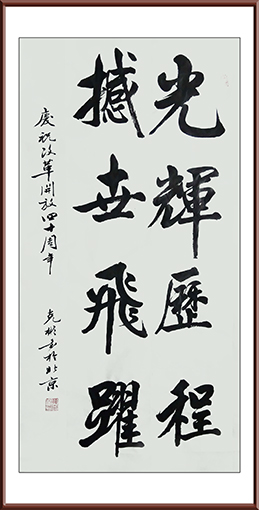 光輝歷程
撼世飛躍
慶祝改革開放四十周年
于北京